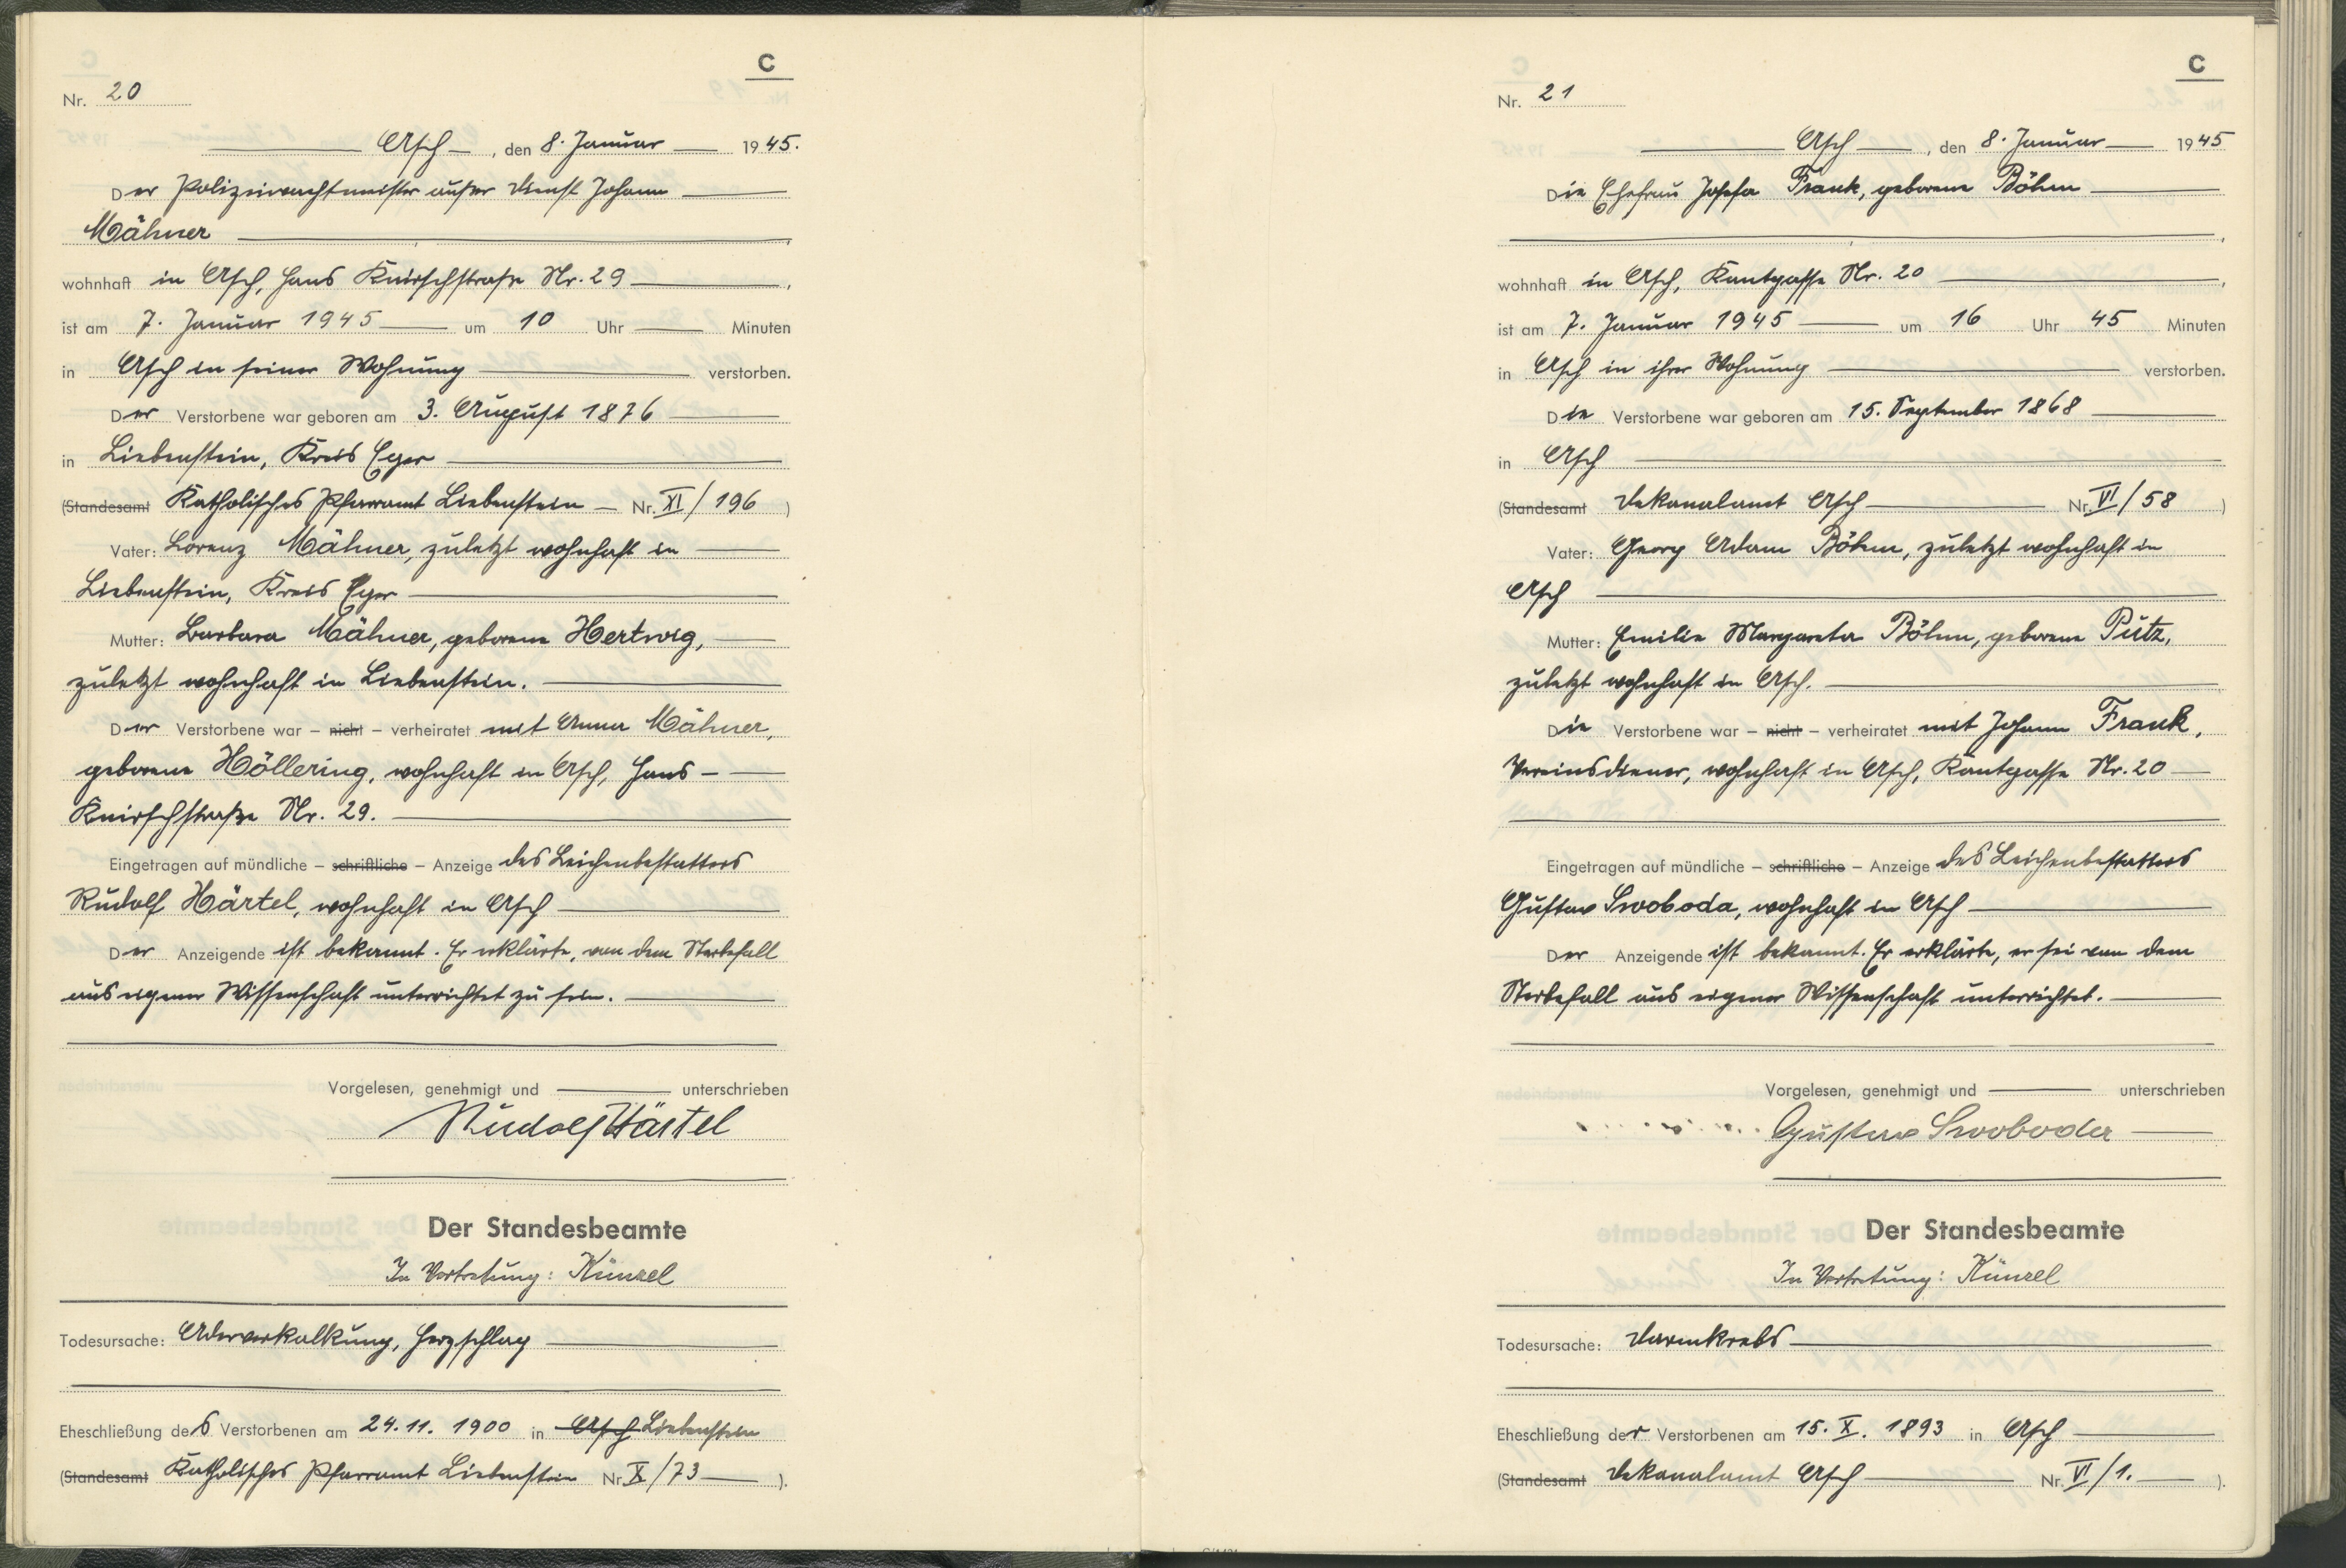 C
Nr. 20
Asch, den 8. Januar 1945.
Der Polizeiwachtmeister außer Dienst Johann
Mähner,
wohnhaft in Asch, Hans Knirschstraße Nr. 29,
ist am 7. Januar 1945 um 10 Uhr Minuten
in Asch in seiner Wohnung verstorben.
Der Verstorbene war geboren am 3. August 1876
in Liebenstein, Kreis Eger
(Standesamt Katholisches Pfarramt Liebenstein Nr. XI/196)
Vater: Lorenz Mähner, zuletzt wohnhaft in
Liebenstein, Kreis Eger
Mutter: Barbara Mähner, geborene Hertwig,
zuletzt wohnhaft in Liebenstein.
Der Verstorbene war – nicht – verheiratet mit Anna Mähner,
geborene Höllering, wohnhaft in Asch, Hans-
Knirschstraße Nr. 29.
Eingetragen auf mündliche – schriftliche – Anzeige des Leichenbestatters
Rudolf Härtel, wohnhaft in Asch
Der Anzeigende ist bekannt. Er erklärte, von dem Sterbefall
aus eigener Wissenschaft unterrichtet zu sein.
Vorgelesen, genehmigt und unterschrieben
Rudolf Härtel
Der Standesbeamte
In Vertretung: Künzel
Todesursache: Aderverkalkung, Herzschlag
Eheschließung des Verstorbenen am 24.11.1900 in Asch Liebenstein
(Standesamt Katholisches Pfarramt Liebenstein Nr. X/73).
C
Nr. 21
Asch, den 8. Januar 1945
Die Ehefrau Josefa Frank, geborene Böhm
,
wohnhaft in Asch, Kantgasse Nr. 20,
ist am 7. Januar 1945 um 16 Uhr 45 Minuten
in Asch in ihrer Wohnung verstorben.
Die Verstorbene war geboren am 15. September 1868
in Asch
(Standesamt Dekanalamt Asch Nr. VI/58)
Vater: Georg Adam Böhm, zuletzt wohnhaft in
Asch
Mutter: Emilie Margareta Böhm, geborene Pütz,
zuletzt wohnhaft in Asch.
Die Verstorbene war – nicht – verheiratet mit Johann Frank,
Vereinsdiener, wohnhaft in Asch, Kantgasse Nr. 20
Eingetragen auf mündliche – schriftliche – Anzeige des Leichenbestatters
Gustav Swoboda, wohnhaft in Asch
Der Anzeigende ist bekannt. Er erklärte, er sei von dem
Sterbefall aus eigener Wissenschaft unterrichtet.
Vorgelesen, genehmigt und unterschrieben
Gustav Swoboda
Der Standesbeamte
In Vertretung: Künzel
Todesursache: Darmkrebs
Eheschließung der Verstorbenen am 15. X. 1893 in Asch
(Standesamt Dekanalamt Asch Nr. VI/1.).